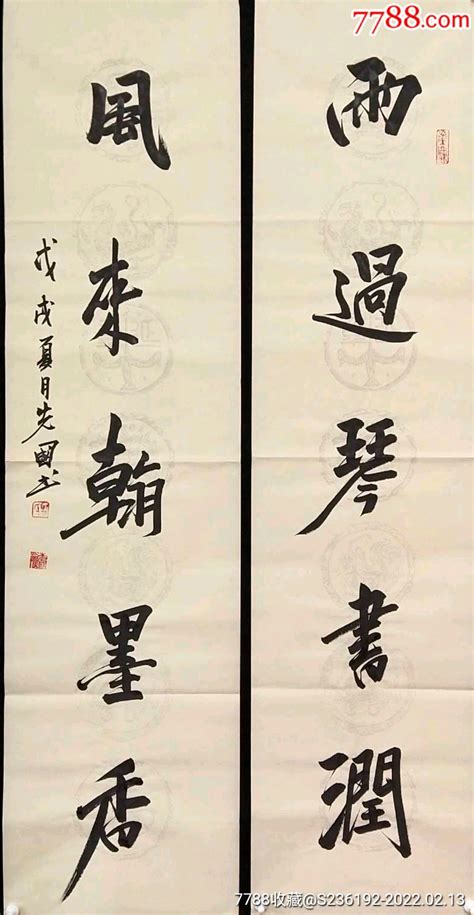 7788.com
雨過琴書潤
風來翰墨香
戊戌夏月先國书
7788收藏@S236192-2022.02.13